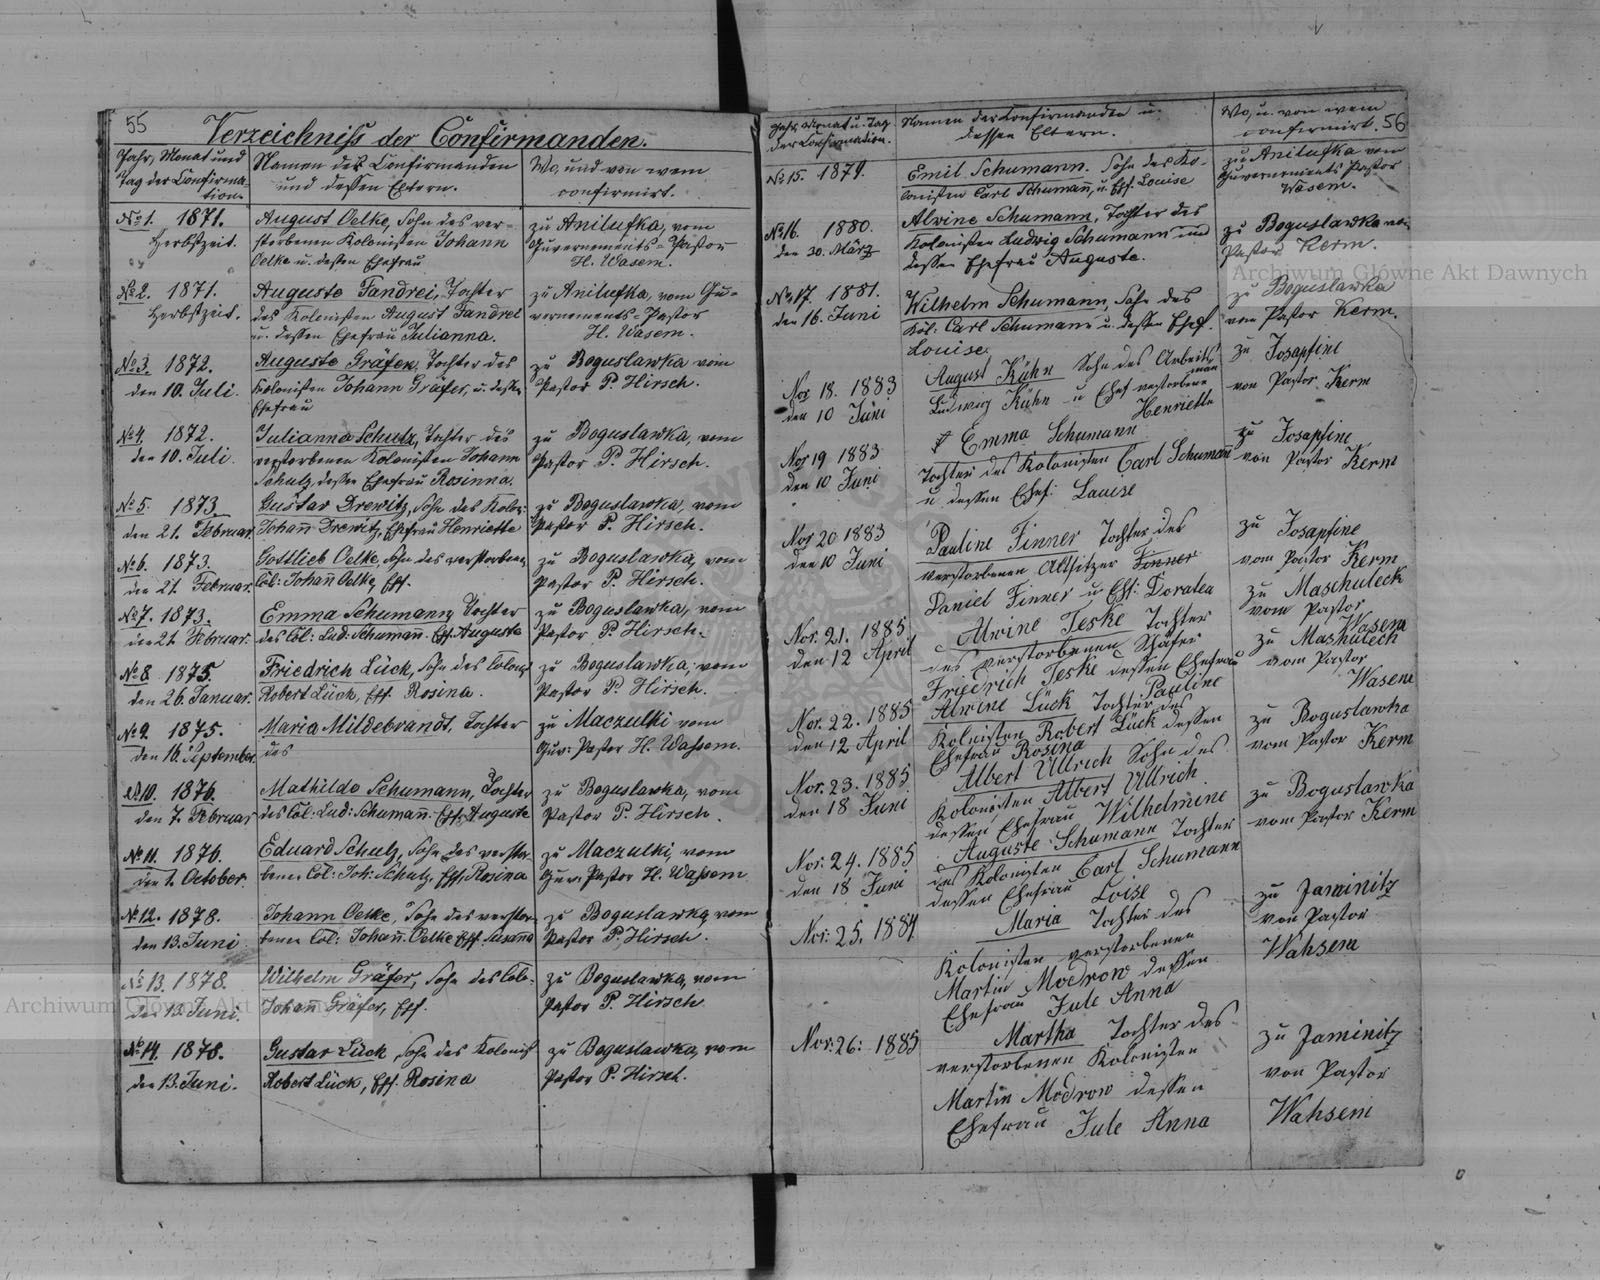 55
Verzeichniss der Confirmanden.
Jahr, Monat und
Tag der Confirma-
tion.
Namen der Confirmanden
und dessen Eltern.
Wo, und von wem
confirmirt.
No 1. 1871.
Herbstzeit.
August Oelke, Sohn des ver-
storbenen Kolonisten Johann
Oelke u. dessen Ehefrau
zu Anilufka, vom
Guvernements-Pastor
H. Wasem.
No 2. 1871.
Herbstzeit.
Auguste Fandrei, Tochter
des Kolonisten August Fandrei
u. dessen Ehefrau Julianna.
zu Anilufka, vom Gu-
vernements-Pastor
H. Wasem.
No 3. 1872.
den 10. Juli.
Auguste Gräfer, Tochter des
Kolonisten Johann Gräfer, u. dessen
Ehefrau
zu Boguslawka vom
Pastor P. Hirsch.
No 4. 1872.
den 10. Juli.
Julianna Schulz, Tochter des
verstorbenen Kolonisten Johann
Schulz, dessen Ehefrau Rosinna.
zu Boguslawka, vom
Pastor P. Hirsch.
No 5. 1873.
den 21. Februar.
Gustav Drewitz, Sohn des Kolon:
Johan̄ Drewitz, Ehefrau Henriette
zu Boguslawka, vom
Pastor P. Hirsch.
No 6. 1873.
den 21. Februar.
Gottlieb Oelke, Sohn des verstorbenen
Col: Johan̄ Oelke, Ehf.
zu Boguslawka, vom
Pastor P. Hirsch.
No 7. 1873.
den 21. Februar.
Emma Schumann, Tochter
des Col: Lud: Schuman̄. Ehf. Auguste
zu Boguslawka, vom
Pastor P. Hirsch.
No 8. 1875.
den 26. Januar.
Friedrich Lück, Sohn des Colonis.
Robert Lück, Ehf. Rosina.
zu Boguslawka, vom
Pastor P. Hirsch.
No 9. 1875.
den 16. September.
Maria Mildebrandt, Tochter
des
zu Maczulki vom
Guv: Pastor H. Wassem.
No 10. 1876.
den 7. Februar
Mathilde Schumann, Tochter
des Col: Lud: Schuman̄. Ehf: Auguste
zu Boguslawka, vom
Pastor P. Hirsch.
No 11. 1876.
den 1. October.
Eduard Schulz, Sohn des verstor-
benen Col: Joh: Schulz, Ehf. Rosina
zu Maczulki, vom
Guv. Pastor H. Wassem
No 12. 1878.
den 13. Juni.
Johann Oelke, Sohn des verstor-
benen Col: Johan̄. Oelke Ehf. Susanna
zu Boguslawka, vom
Pastor P. Hirsch.
No 13. 1878.
den 13. Juni.
Wilhelm Gräfer, Sohn des Col:
Johan̄ Gräfer, Ehf.
zu Boguslawka, vom
Pastor P. Hirsch
No 14. 1878.
den 13. Juni.
Gustav Lück, Sohn des Kolonist
Robert Lück, Ehf. Rosina
zu Boguslawka, vom
Pastor P. Hirsch.
Jahr, Monat u. Tag
der Confirmation.
Namen der Confirmanden u.
dessen Eltern.
Wo, u. von wem
confirmirt. 56
No 15. 1879.
Emil Schumann. Sohn des Ko-
lonisten Carl Schuman̄, u. Ehf. Louise
zu Anilufka vom
Guvernements Pastor
Wasem.
No 16. 1880.
den 30. März
Alvine Schumann, Tochter des
Kolonisten Ludwig Schumann und
dessen Ehefrau Auguste.
zu Boguslawka vom
Pastor Kerm.
No 17. 1881.
den 16. Juni
Wilhelm Schumann, Sohn des
Kol: Carl Schumann u. dessen Ehef.
Louise.
zu Boguslawka
von Pastor Kerm.
Nor 18. 1883
den 10 Juni
August Kühn Sohn des Arbeits
man
Ludwig Kühn u Ehef verstorbene
Henriette
zu Josapfine
von Pastor Kerm
Nor 19 1883
den 10 Juni
Emma Schumann
Tochter des Kolonisten Carl Schuman̄
u. dessen Ehef: Lauise
zu Josapfine
von Pastor Kerm
Nor 20 1883
den 10 Juni
Pauline Finner Tochter des
verstorbenen Altsitzer Finner
Daniel Finner u Ehf: Doratea
zu Josapfine
vom Pastor Kerm
Nor. 21. 1885.
den 12 April
Alwine Jeske Tochter
des verstorbenen Schäfer
Friedrich Jeske dessen Ehefrau
Pauline
zu Maschuleck
vom Pastor
Wasem
Nor. 22. 1885
den 12 April
Alwine Lück Tochter des
Kolonisten Robert Lück dessen
Ehefrau Rosina
zu Mashulech
vom Pastor
Wasem
Nor. 23. 1885.
den 18 Juni
Albert Ullrich Sohn des
Kolonisten Albert Ullrich
dessen Ehefrau Wilhelmine
zu Boguslawka
vom Pastor Kerm
Nor: 24. 1885
den 18 Juni
Auguste Schumann Tochter
des Kolonisten Carl Schumann
dessen Ehefrau Loise
zu Boguslawka
vom Pastor Kerm
Nor: 25. 1884
Maria Tochter des
Kolonisten verstorbenen
Martin Modrow dessen
Ehefrau Jule Anna
zu Jaminitz
von Pastor
Wahsem
Nor: 26: 1885
Martha Tochter des
verstorbenen Kolonisten
Martin Modrow dessen
Ehefrau Jule Anna
zu Jaminitz
von Pastor
Wahsem
Archiwum Główne Akt Dawnych
Archiwum Główne Akt Dawnych